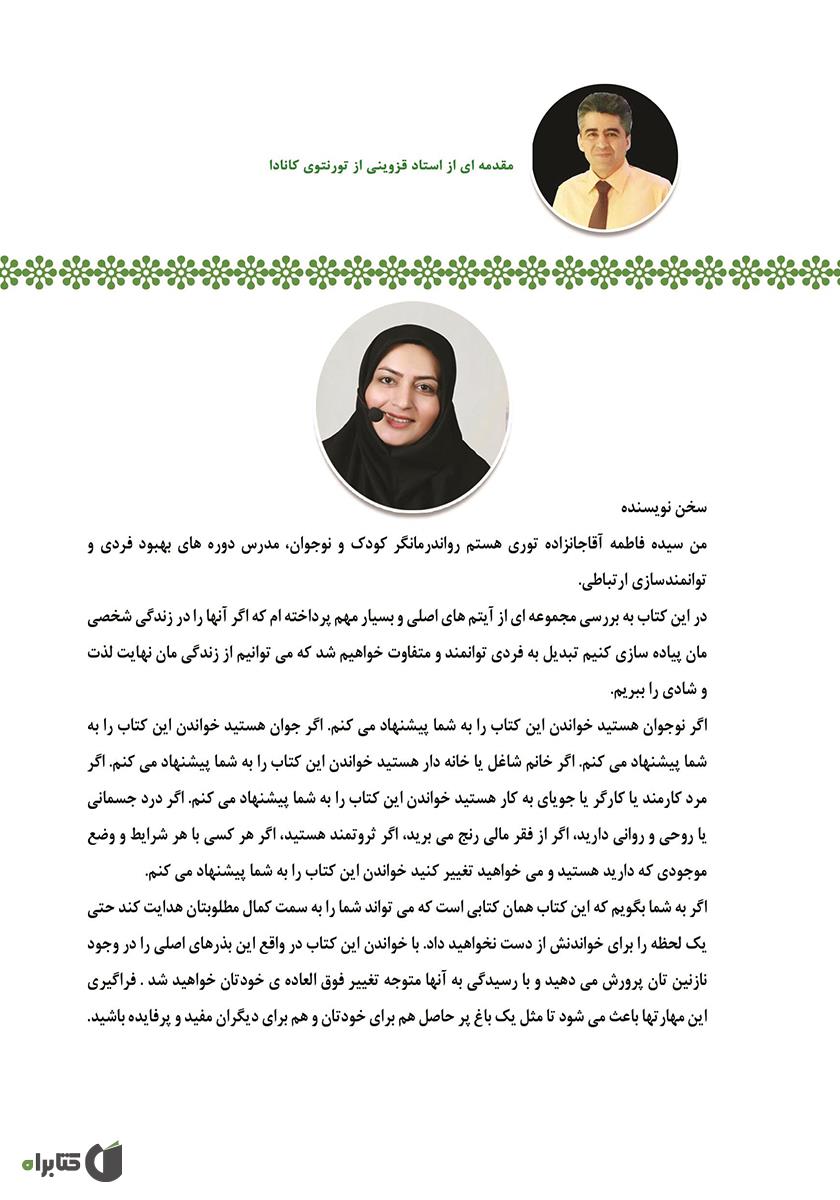 مقدمه ای از استاد قزوینی از تورنتوی کانادا
سخن نویسنده
من سیده فاطمه آقاجانزاده توری هستم رواندرمانگر کودک و نوجوان، مدرس دوره های بهبود فردی و
توانمندسازی ارتباطی.
در این کتاب به بررسی مجموعه ای از آیتم های اصلی و بسیار مهم پرداخته ام که اگر آنها را در زندگی شخصی
مان پیاده سازی کنیم تبدیل به فردی توانمند و متفاوت خواهیم شد که می توانیم از زندگی مان نهایت لذت
و شادی را ببریم.
اگر نوجوان هستید خواندن این کتاب را به شما پیشنهاد می کنم. اگر جوان هستید خواندن این کتاب را به
شما پیشنهاد می کنم. اگر خانم شاغل یا خانه دار هستید خواندن این کتاب را به شما پیشنهاد می کنم. اگر
مرد کارمند یا کارگر یا جویای به کار هستید خواندن این کتاب را به شما پیشنهاد می کنم. اگر درد جسمانی
یا روحی و روانی دارید، اگر از فقر مالی رنج می برید، اگر ثروتمند هستید، اگر هر کسی با هر شرایط و وضع
موجودی که دارید هستید و می خواهید تغییر کنید خواندن این کتاب را به شما پیشنهاد می کنم.
اگر به شما بگویم که این کتاب همان کتابی است که می تواند شما را به سمت کمال مطلوبتان هدایت کند حتی
یک لحظه را برای خواندنش از دست نخواهید داد. با خواندن این کتاب در واقع این بذرهای اصلی را در وجود
نازنین تان پرورش می دهید و با رسیدگی به آنها متوجه تغییر فوق العاده ی خودتان خواهید شد . فراگیری
این مهارتها باعث می شود تا مثل یک باغ پر حاصل هم برای خودتان و هم برای دیگران مفید و پرفایده باشید.
کتابراه